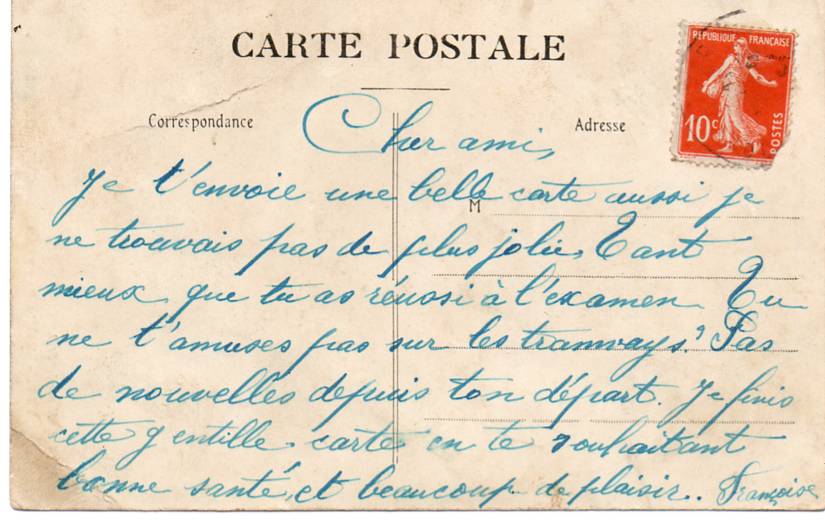 CARTE POSTALE
REPUBLIQUE FRANÇAISE
10c
POSTES
Correspondance
Adresse
M
Cher ami,
Je t'envoie une belle carte aussi je
ne trouvais pas de plus jolie, Tant
mieux que tu as réussi à l'examen Tu
ne t'amuses pas sur les tramways? Pas
de nouvelles depuis ton départ. Je finis
cette gentille carte en te souhaitant
bonne santé, et beaucoup de plaisir.. Françoise